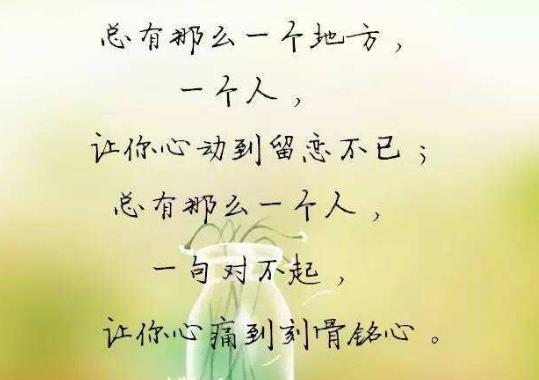 总有那么一个地方，
一个人，
让你心动到留恋不已；
总有那么一个人，
一句对不起，
让你心痛到刻骨铭心。